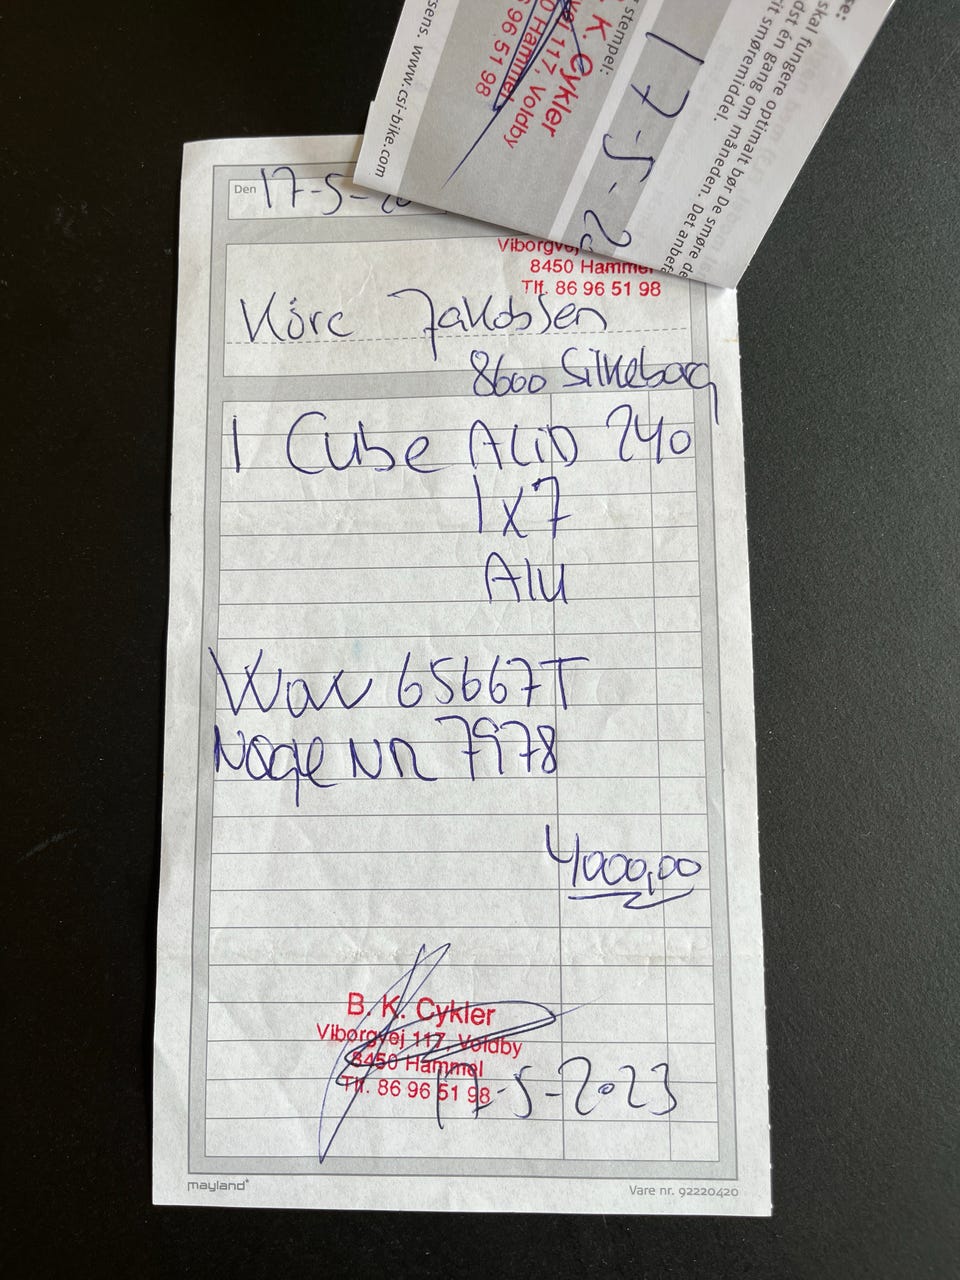 sens. www.csi-bike.com
stempel:
K. Cykler
vej 117, Voldby
0 Hammel
6 96 51 98
17-5-2
skal fungere optimalt bør De smøre de
dst én gang om måneden. Det anbef
it smøremiddel.
Den 17-5-
Viborgvej
8450 Hammel
Tlf. 86 96 51 98
Kóre Jakobsen
8600 Silkeborg
1 Cube ALiD 240
1x7
Alu
65667T
Nøgle NR 7978
4000,00
B. K. Cykler
Viborgvej 117, Voldby
8450 Hammel
Tlf. 86 96 51 98
17-5-2023
mayland
Vare nr. 92220420